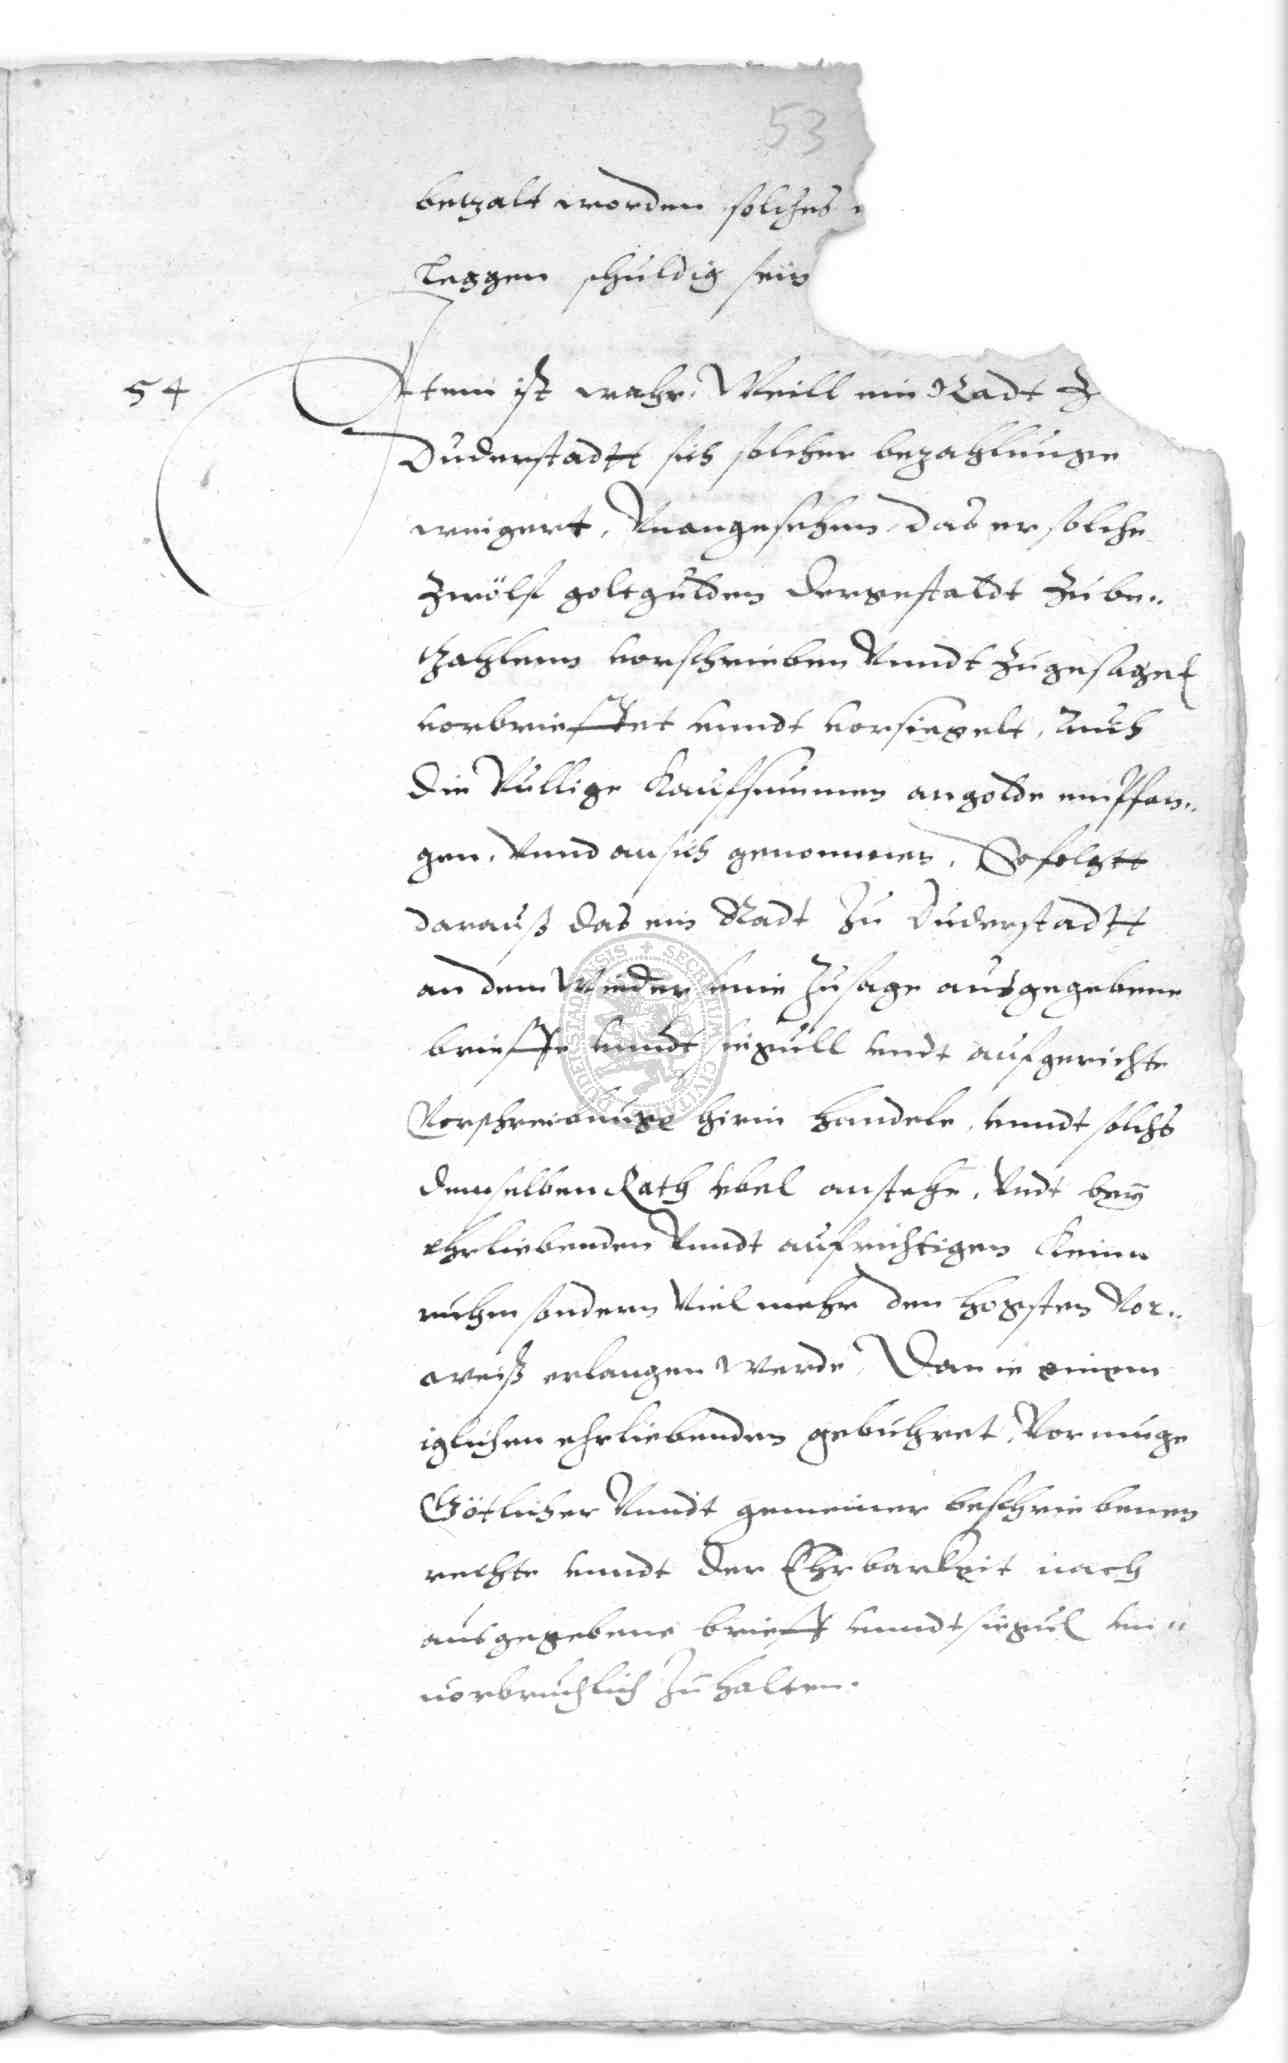 53
betzalt worden solches
leggen schuldig sein
54 Item ist wahr, Weill ein Radt Z
Duderstadtt sich solcher bezahlunge
weigert, Unangesehen, das er solche
zwölf goltgulden dergestaldt zu be„
tzahlenn vorschrieben Unndt zugesaget
vorbrieffet unndt vorsiegelt, auch
die Vullige Kauffsummen an golde empffan„
gen, Unnd an sich genommen, So folgtt
darauß das ein Radt zu Duderstadtt
an dem Wieder seine Zusage ausgegebene
brieffe unndt siegull undt aufgerichte
Vorschreibunge hirin handele, unndt solchs
demselben Rath ubel anstehe, Undt beÿ
ehrliebenden Unndt aufrichtigen Keinn
ruhm sondern Viel mehr den hogsten Vor„
weiß erlangen werde, Dan ie einem
iglichen ehrliebenden gebuhret, Vormuge
Götlicher Unndt gemeiner beschriebenen
rechte unndt der Ehrbarkeit nach
ausgegebene brieff unndt siegul un„
vorbruchlich zu halten.
SECRETUM CIVIUM